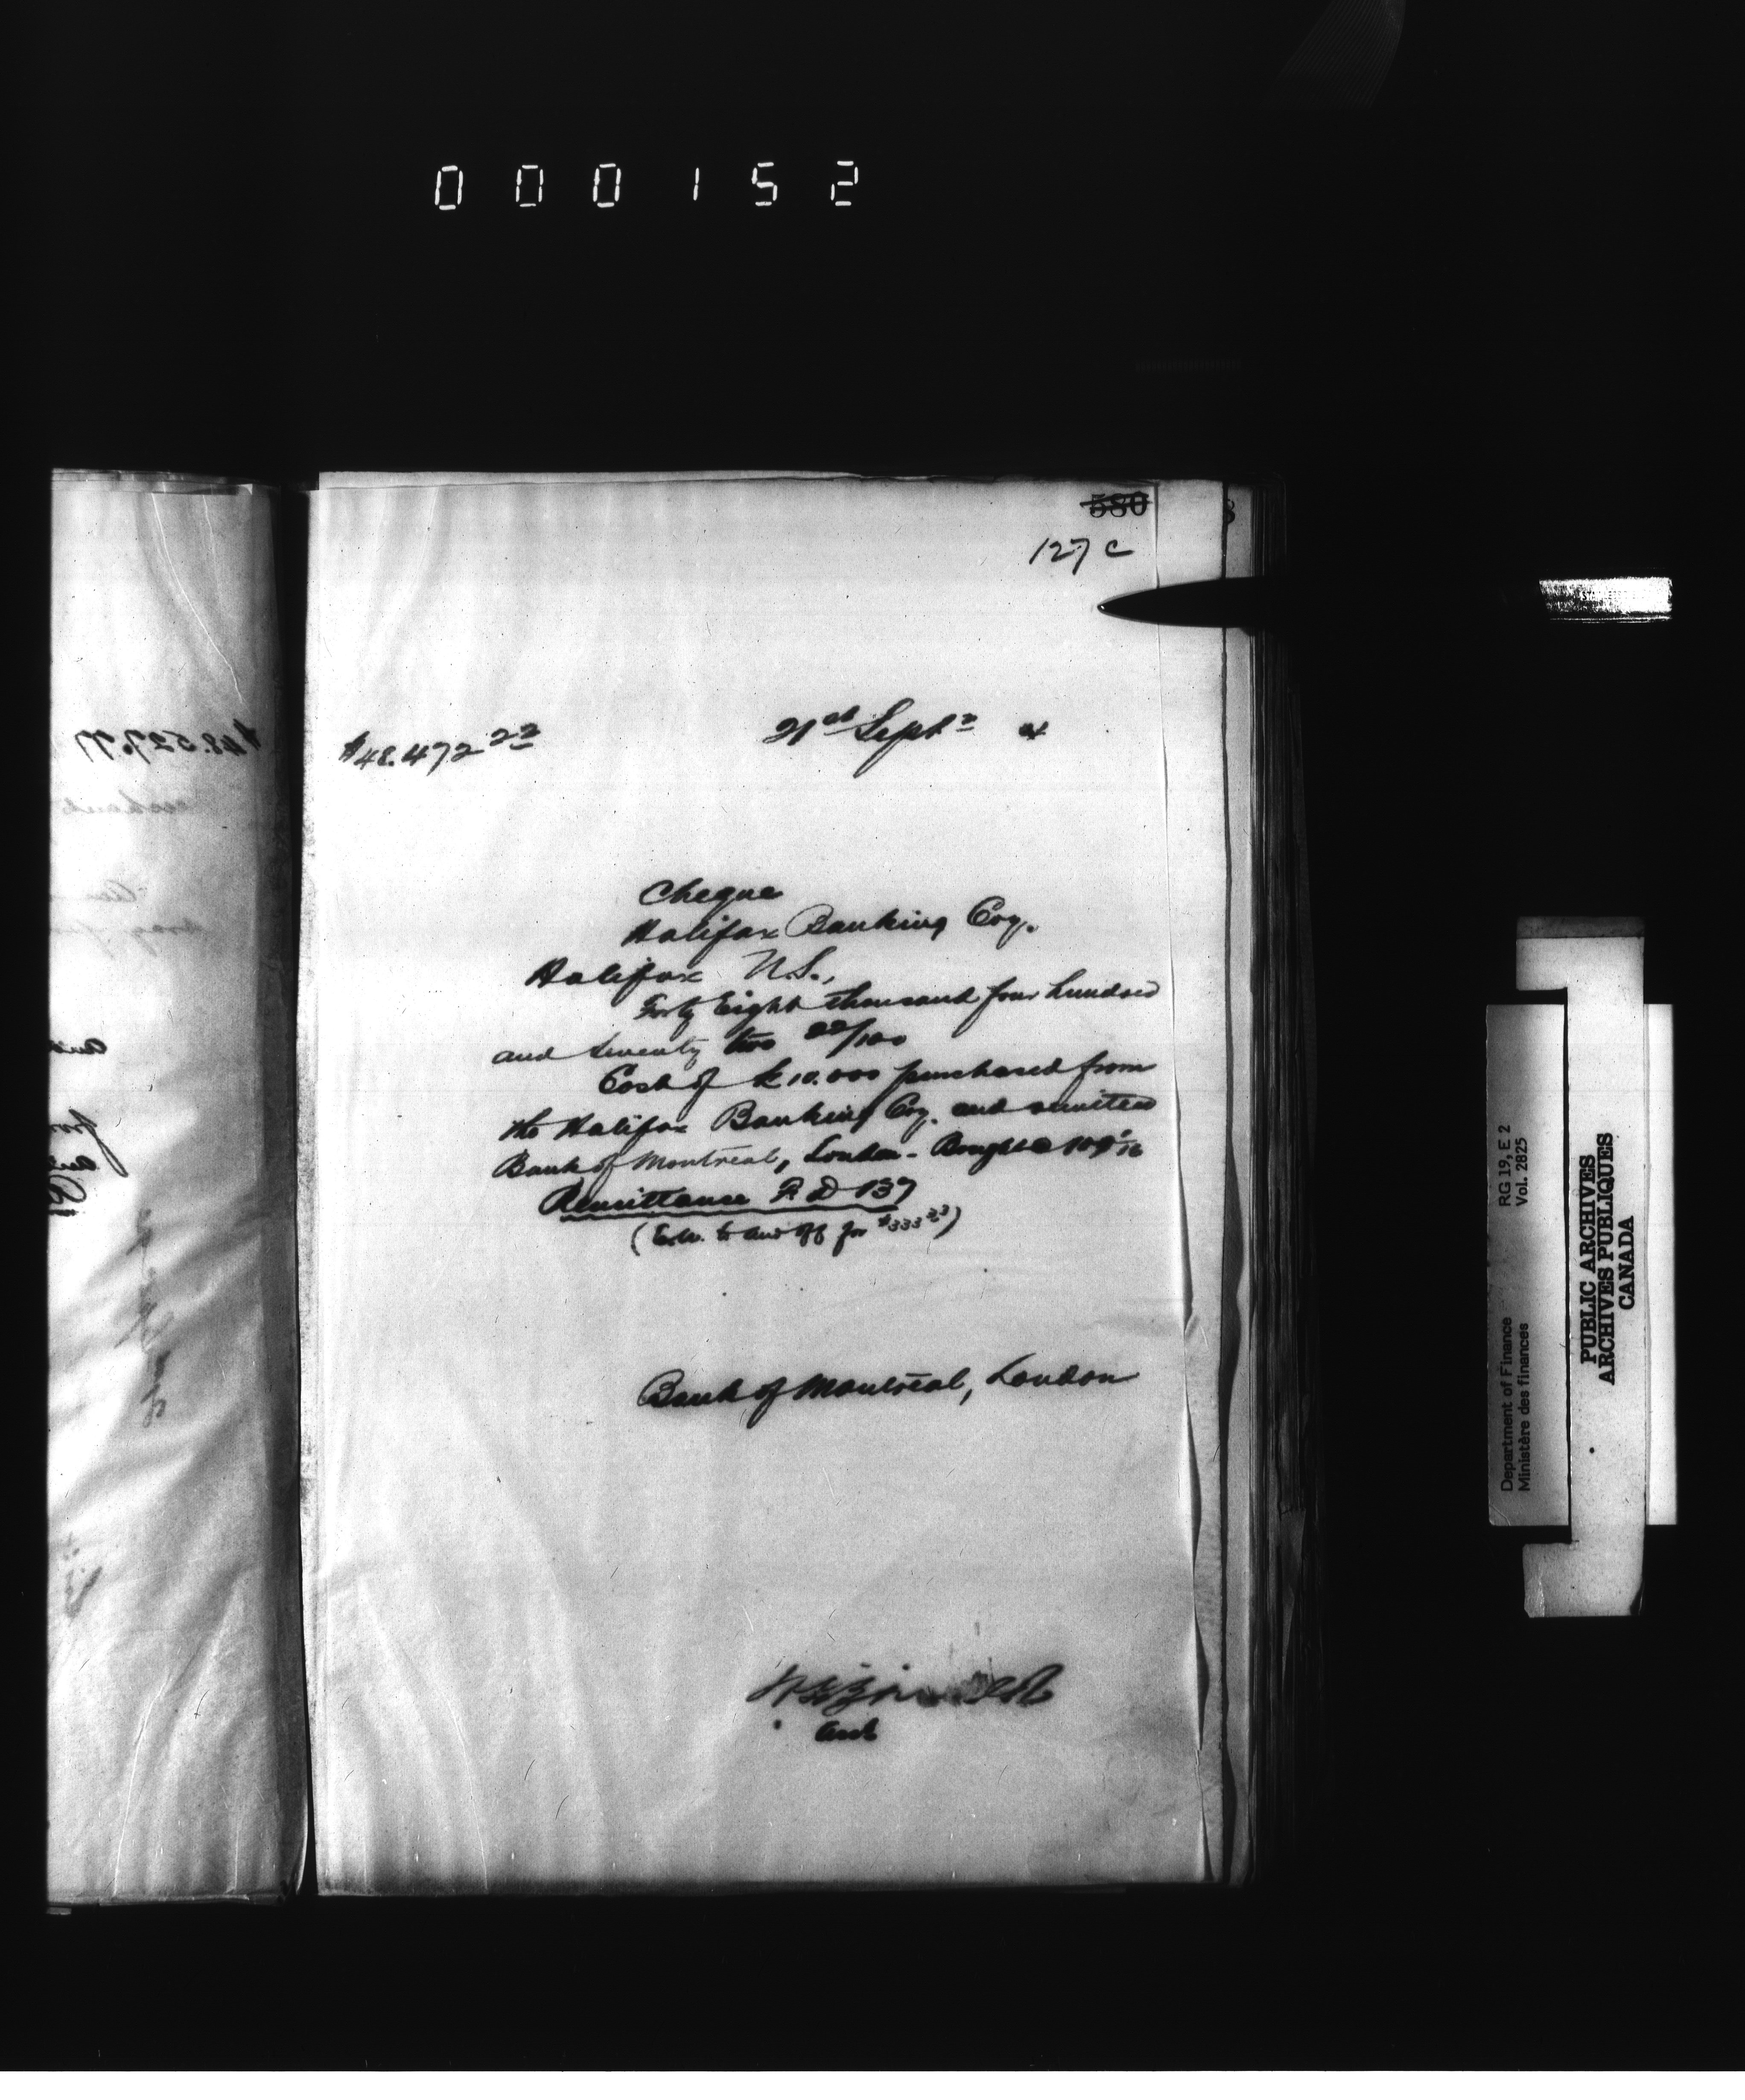 000152
580
127 c
$48.472 22 21st Septr 4
Cheque
Halifax Banking Coy.
Halifax N.S.,
Forty Eight thousand four hundred
and seventy two 22/100
Cost of £10.000 purchased from
the Halifax Banking Coy. and remitted
Bank of Montreal, London - Bought @ 109 1/16
Remittance F. D 137
(Extr. to Aud Off for $333 33)
Bank of Montreal, London
$48.527.77
RG 19, E 2
Vol. 2825
Department of Finance
Ministère des finances
PUBLIC ARCHIVES
ARCHIVES PUBLIQUES
CANADA